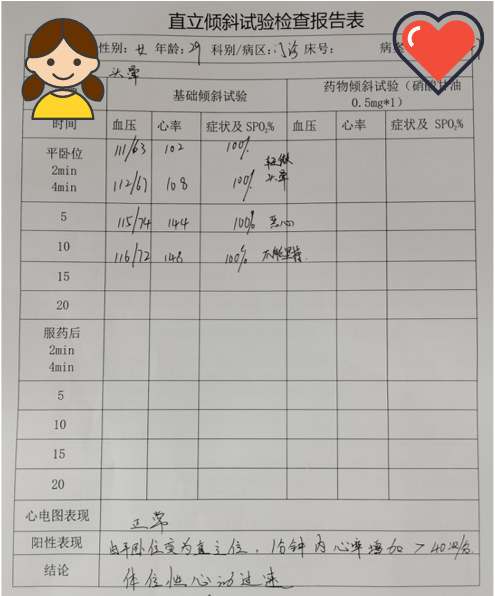 直立倾斜试验检查报告表
性别: 女 年龄: 29 科别/病区: 门诊 床号: 病案
头晕
基础倾斜试验 药物倾斜试验(硝酸甘油 0.5mg*1)
时间 血压 心率 症状及 SPO₂% 血压 心率 症状及 SPO₂%
平卧位 111/63 102 100%
2min 轻微
4min 112/67 108 100% 头晕
5 115/74 144 100% 恶心
10 116/72 148 100% 不能坚持
15
20
服药后
2min
4min
5
10
15
20
心电图表现 正常
阳性表现 由平卧位变为直立位，1分钟内心率增加 > 40次/分
结论 体位性心动过速